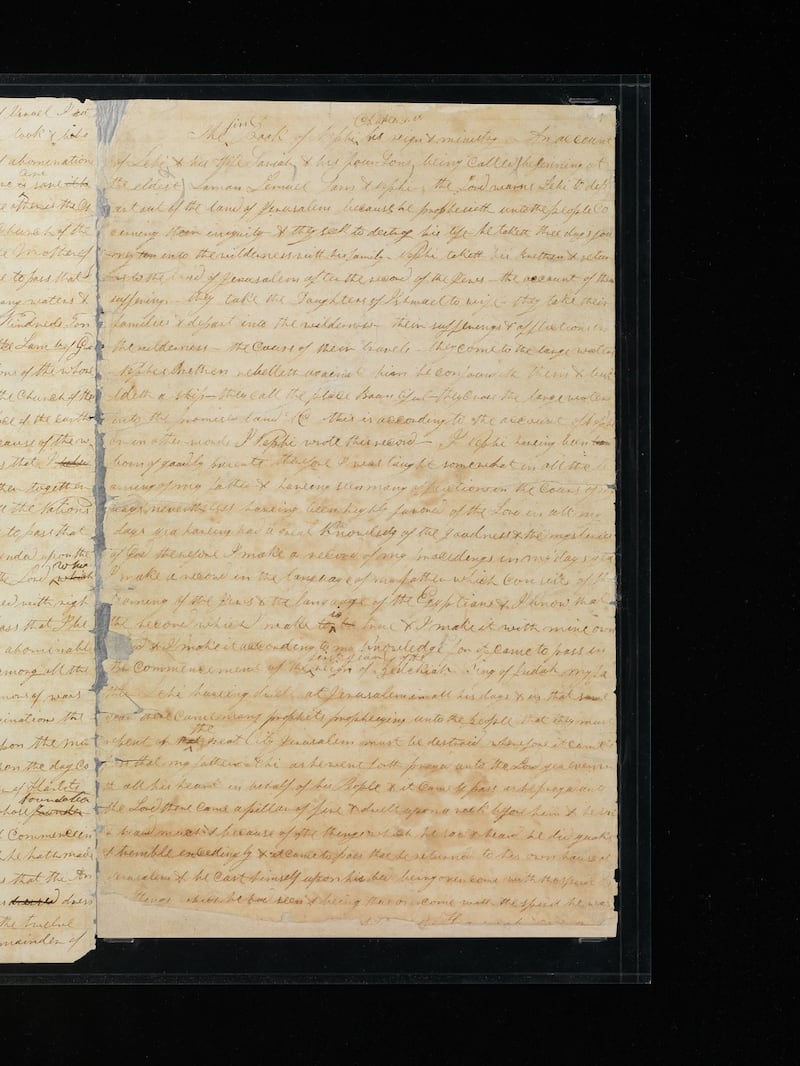 f Israel I
look & beho
d abomination
came
save
the
Church of the
Mother of
e to pass that
many waters &
Kindreds Ton
the Lam by G
ons of the whore
the Church of the
face of the earth
cause of the w
s that I
ther together
the Nations
to pass that
upon the
who
the Lord which
ed with righ
pass that I be
abominable
among all the
mors of wars
the
upon the mo
on the day
of Harlots
foundation
whore founder
Commencein
he hath made
s that the An
dressed dress
the twelve
mainder of
first Chapter
The Book of Nephi his reign & ministry An account
of Lehi & his Wife Sariah & his four Sons being called beginning at
the eldest Laman Lemuel Sam & Nephi the Lord warns Lehi to dep
art out of the land of Jerusalem because he prophesieth unto the people co
ncerning their iniquity & they seek to destroy his life he taketh three days jou
rney into the wilderness with his family Nephi taketh his brethren & retur
ns to the land of Jerusalem after the record of the Jews the account of their
sufferings they take the Daughters of Ishmael to wife they take their
families & depart into the wilderness their sufferings & afflictions in
the wilderness the Cours of their travels they come to the large waters
Nephis Brethren rebelleth against him he confoundeth them & bui
ldeth a ship they call the place Bountiful they cross the large waters
into the promised land &C this is according to the account of Nephi
or in other words I Nephi wrote this record I Nephi having been
born of goodly parents therefore I was taught somewhat in all the le
arning of my father & having seen many afflictions in the Cours of my
days nevertheless having been highly favored of the Lord in all my
days yea having had a great Knowledg of the goodness & the mysteries
of God therefore I make a record of my proceedings in my days yea
I make a record in the language of my father which consists of the
learning of the Jews & the language of the Egyptians & I know that
is
the record which I make to be true & I make it with mine own
& I make it according to my Knowledge for it came to pass in
first year of the
the Commencement of the reign of Zedekiah King of Judah my fa
ther Lehi having dwelt at Jerusalem in all his days & in that same
year there came many prophets prophesying unto the People that they must
the
repent or that great City Jerusalem must be destroid wherefore it came t
o that my father Lehi as he went forth prayed unto the Lord yea even wi
th all his heart in behalf of his People & it came to pass as he prayed unto
the Lord there came a pillar of fire & dwelt upon a rock before him & he saw
& heard much & because of the things which he saw & heard he did quake
& tremble exceedingly & it came to pass that he returned to his own house at
Jerusalem & he cast himself upon his bed being overcome with the spirit &
things which he had seen & being thus overcome with the spirit he was